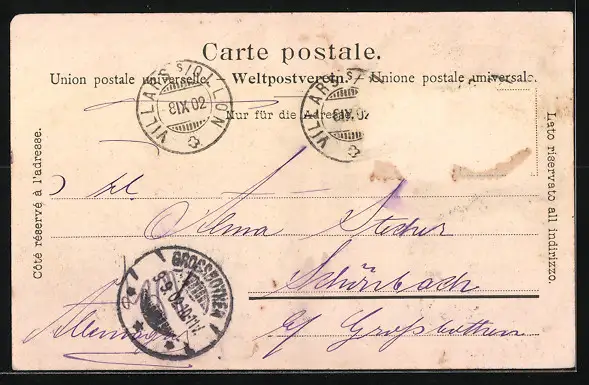 Carte postale.
Union postale universelle. Weltpostverein. Unione postale universale.
Nur für die Adresse.
VILLARS S/OLLON
8 IX 02
VILLARS S/
8 IX 02
Côté réservé à l'adresse.
Lato riservato all indirizzo.
Frl.
Alma Stecher
Schönbach
b/ Großbothen
Allemagne
GROSSBOTHEN